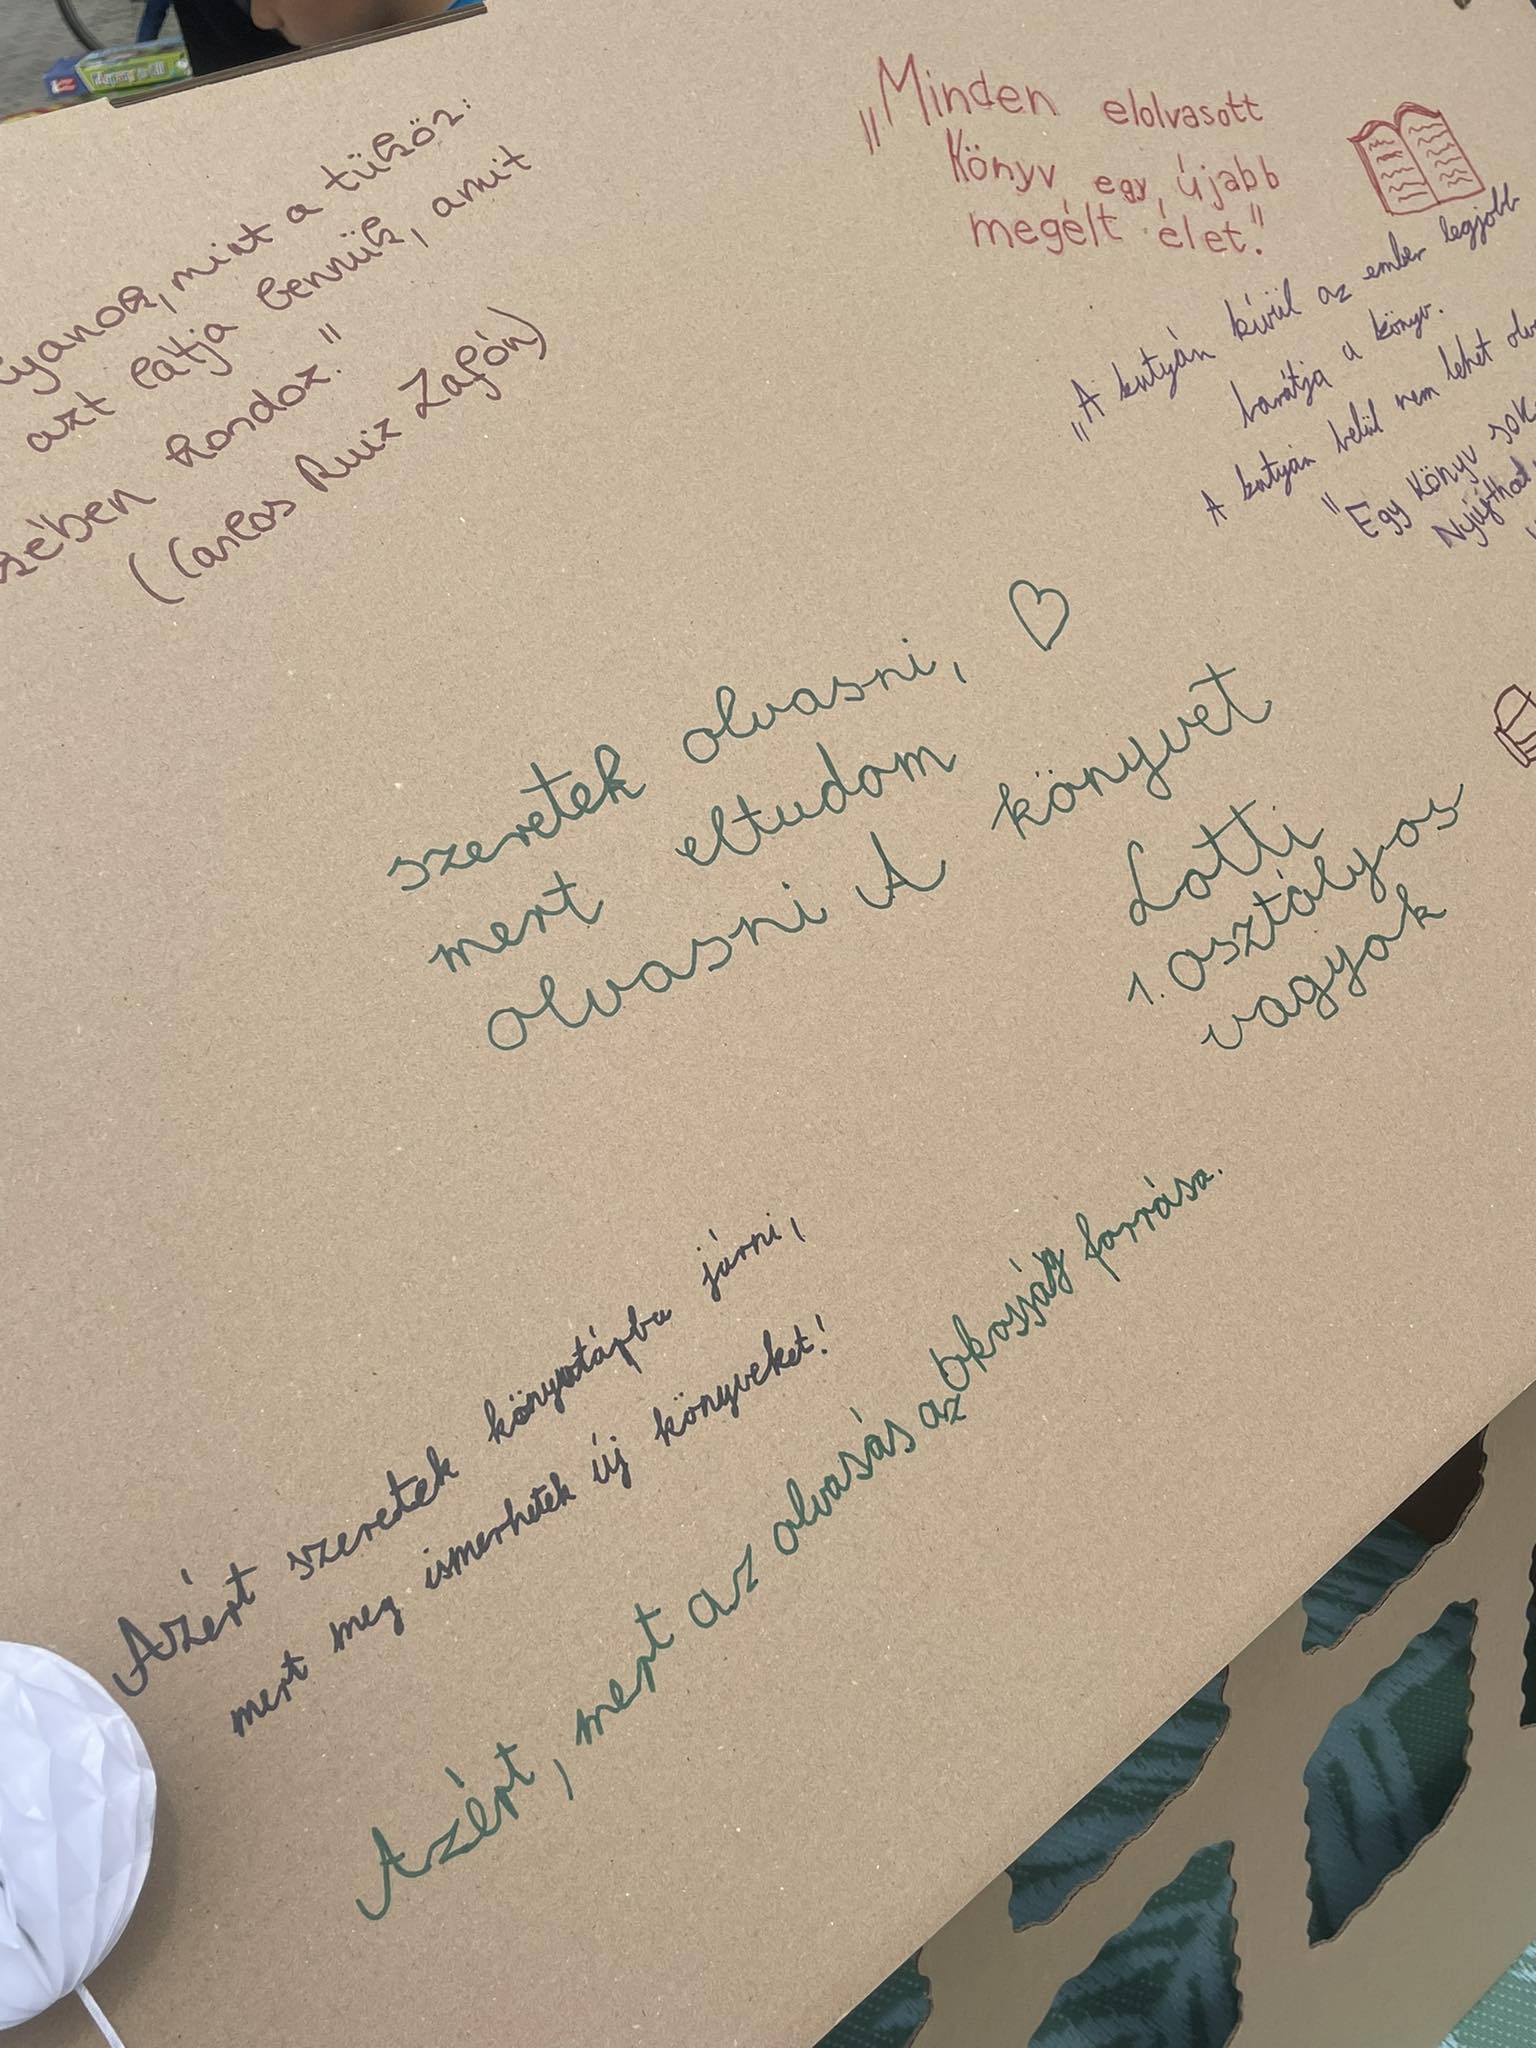 mint a tükör:
azt látja bennük, amit
hordoz."
(Carlos Ruiz Zafón)
„Minden elolvasott
Könyv egy újabb
megélt élet."
„A kutyán kívül az ember legjobb
barátja a könyv.
A kutyán belül nem lehet
"Egy Könyv sok
Nyújthat
szeretek olvasni,
mert eltudom
olvasni A könyvet
Lotti
1. osztályos
vagyok
Azért szeretek könyvtárba járni,
mert meg ismerhetek új könyveket!
Azért, mert az olvasás az okosság forrása.